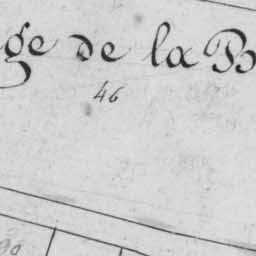 ge de la B
46